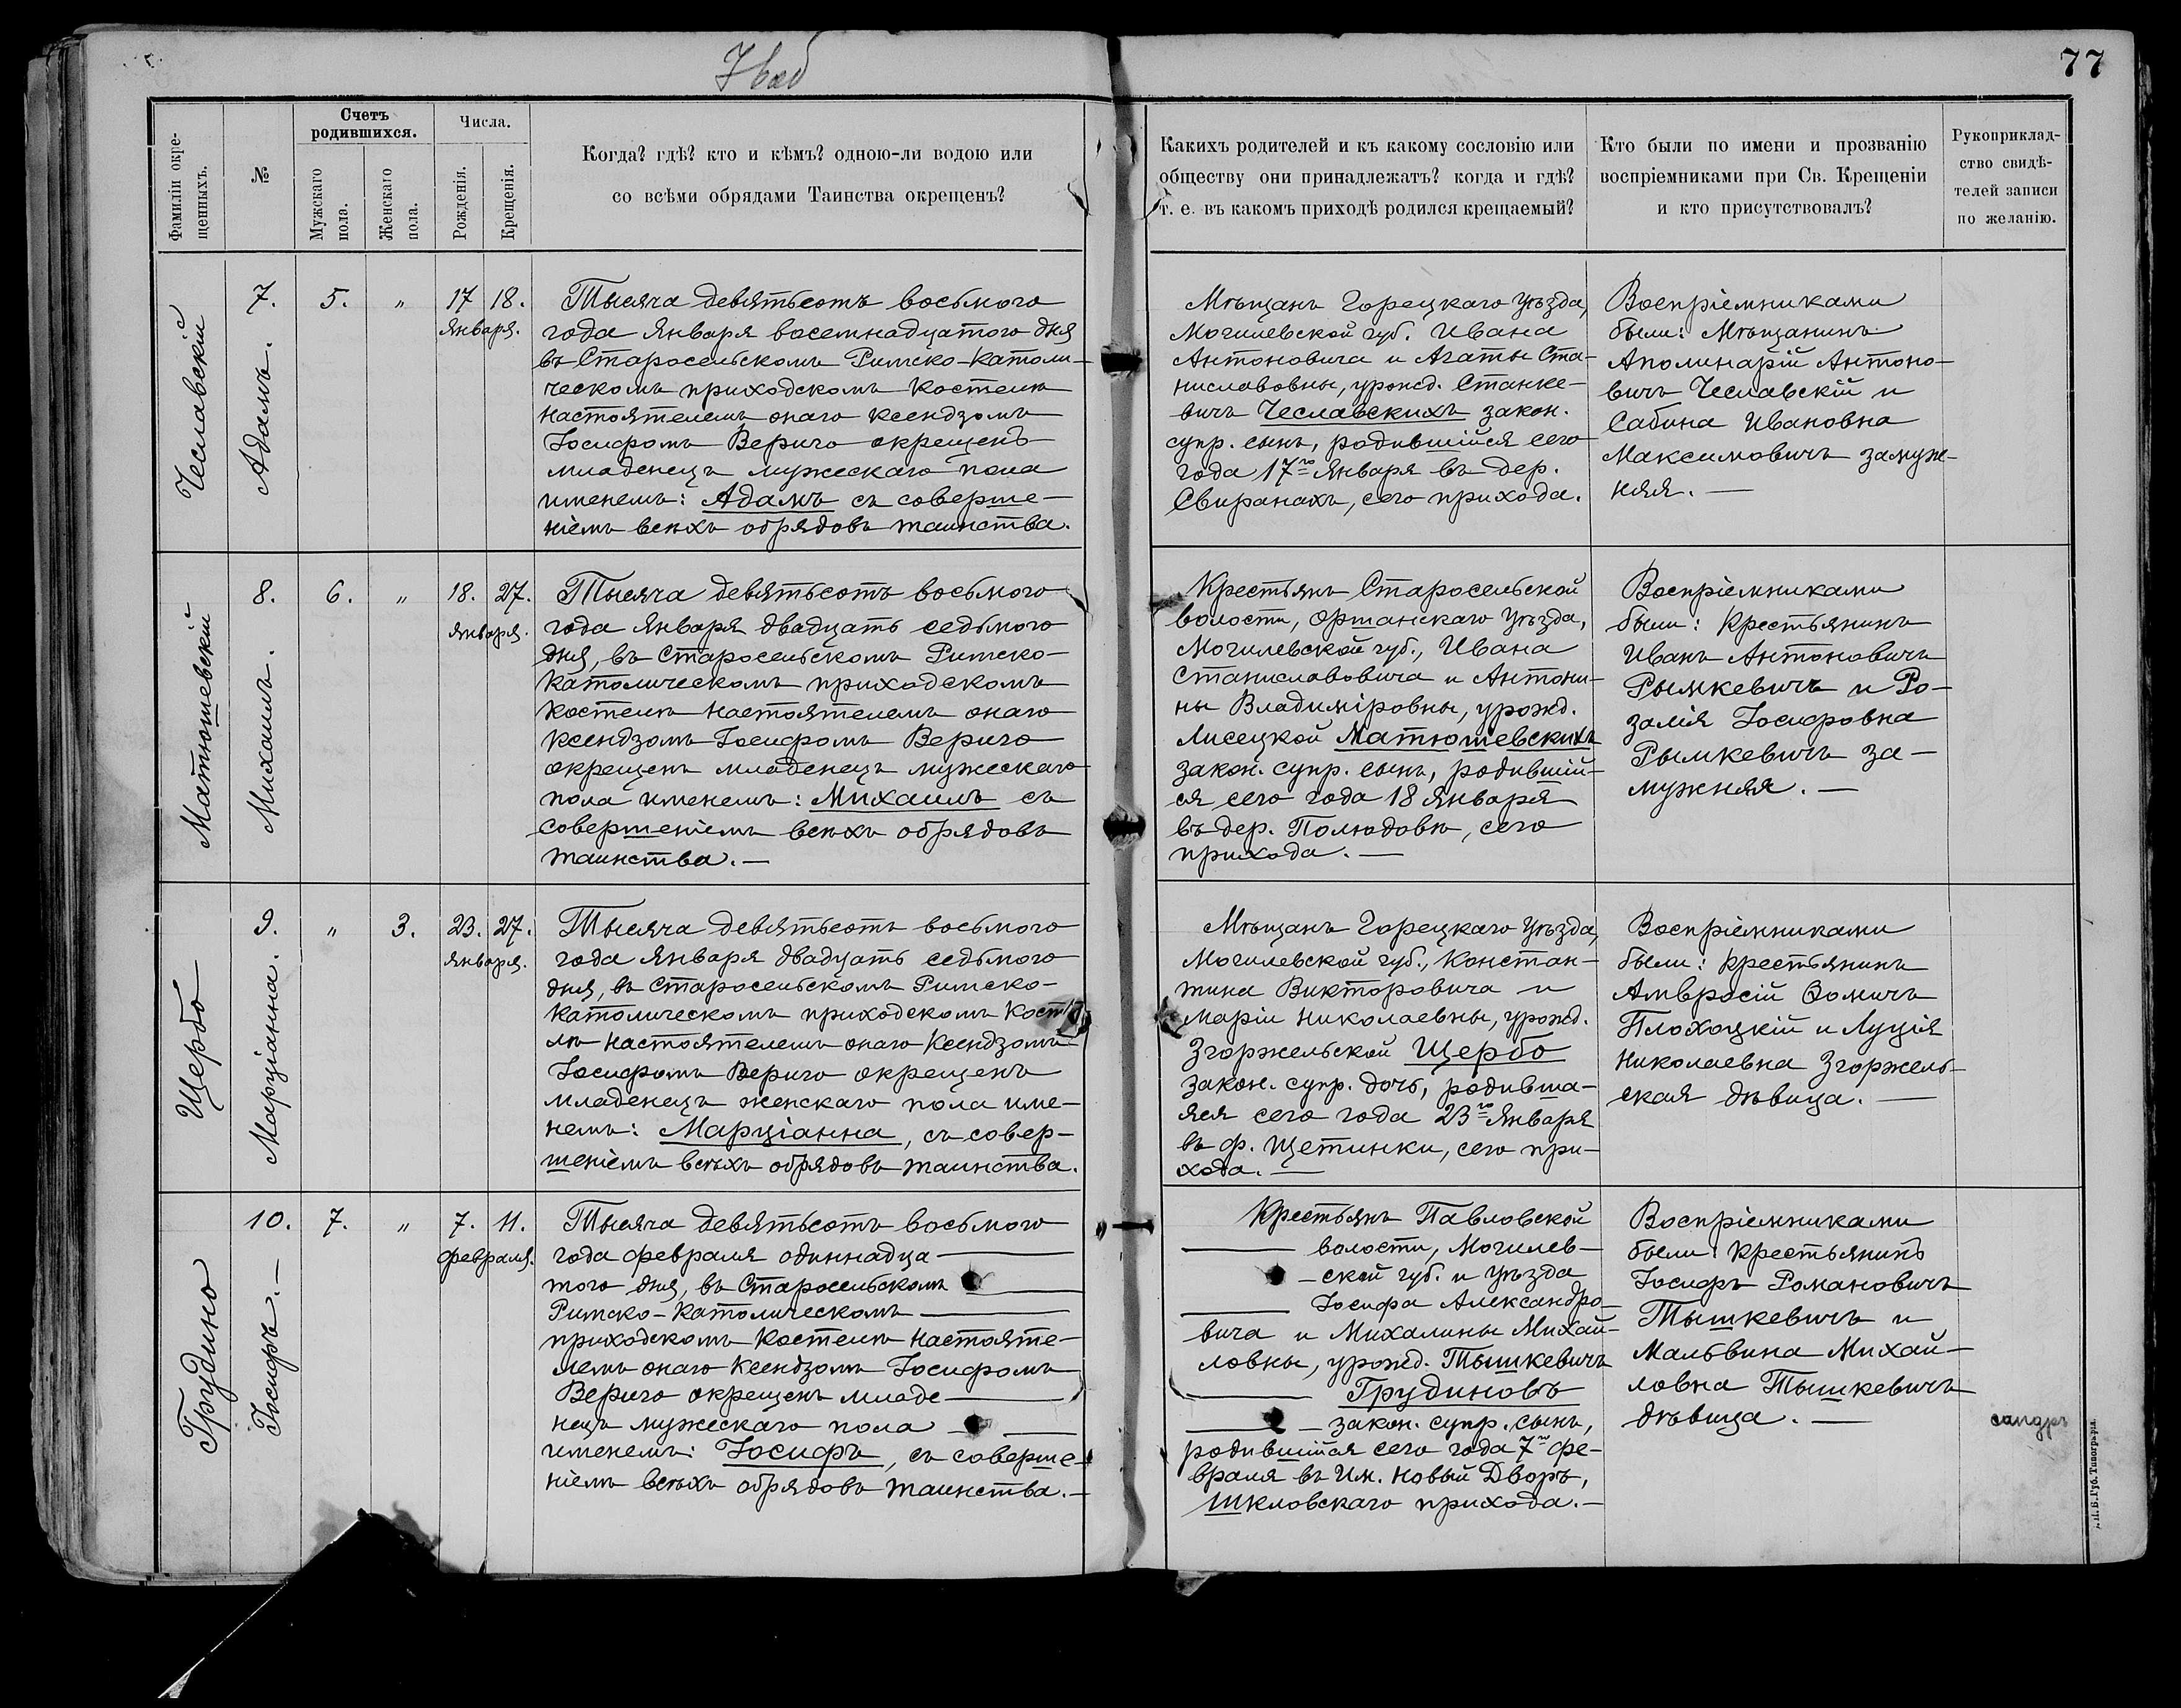 77
Фамиліи окре-
щенныхъ.
№
Счетъ
родившихся.
Мужскаго
пола.
Женскаго
пола.
Числа.
Рожденія.
Крещенія.
Когда? гдѣ? кто и кѣмъ? одною-ли водою или
со всѣми обрядами Таинства окрещенъ?
Какихъ родителей и къ какому сословію или
обществу они принадлежатъ? когда и гдѣ?
т. е. въ какомъ приходѣ родился крещаемый?
Кто были по имени и прозванію
воспріемниками при Св. Крещеніи
и кто присутствовалъ?
Рукоприклад-
ство свидѣ-
телей записи
по желанію.
Чеславскій
7.
Адамъ.
5.
„
17 18.
Января.
Тысяча девятьсотъ восьмого
года Января восемнадцатого дня
въ Старосельскомъ Римско-католи-
ческомъ приходскомъ костелѣ
настоятелемъ онаго ксендзомъ
Іосифомъ Верыго окрещенъ
младенецъ мужескаго пола
именемъ: Адамъ съ соверше-
ніемъ всѣхъ обрядовъ таинства.
Мѣщанъ Горецкаго Уѣзда,
Могилевской губ. Ивана
Антоновича и Агаты Ста-
нислововны, урожд. Станке-
вичъ Чеславскихъ закон.
супр. сынъ, родившійся сего
года 17го Января въ дер.
Свиранахъ, сего прихода.
Воспріемниками
были: Мѣщанинъ
Аполинарій Антоно-
вичъ Чеславскій и
Сабина Ивановна
Максимовичъ замуж-
няя. —
Матюшевскій
8.
Михаилъ.
6.
„
18. 27.
Января.
Тысяча девятьсотъ восьмого
года Января двадцать седьмого
дня, въ Старосельскомъ Римско-
католическомъ приходскомъ
костелѣ настоятелемъ онаго
ксендзомъ Іосифомъ Верыго
окрещенъ младенецъ мужескаго
пола именемъ: Михаилъ съ
совершеніемъ всѣхъ обрядовъ
таинства. —
Крестьянъ Старосельской
волости, Оршанскаго Уѣзда,
Могилевской губ., Ивана
Станиславовича и Антони-
ны Владиміровны, урожд.
Лисецкой Матюшевскихъ
закон. супр. сынъ, родившій-
ся сего года 18 Января
въ дер. Полюдовѣ, сего
прихода. —
Воспріемниками
были: Крестьянинъ
Иванъ Антоновичъ
Рымкевичъ и Ро-
залія Іосифовна
Рымкевичъ за-
мужняя. —
Щербо
9.
Марціанна.
„
3.
23. 27.
Января.
Тысяча девятьсотъ восьмого
года Января двадцать седьмого
дня, въ Старосельскомъ Римско-
католическомъ приходскомъ
лѣ настоятелемъ онаго Ксендзомъ
Іосифомъ Верыго окрещенъ
младенецъ женскаго пола име-
немъ: Марціанна, съ совер-
шеніемъ всѣхъ обрядовъ таинства.
Мѣщанъ Горецкаго Уѣзда,
Могилевской губ., Констан-
тина Викторовича и
Маріи Николаевны, урожд.
Згоржельской Щербо
закон. супр. дочь, родивша-
яся сего года 23го Января
въ ф. Щетинки, сего при-
хода. —
Воспріемниками
были: Крестьянинъ
Амвросій Ѳомичъ
Плохоцкій и Луція
Николаевна Згоржель-
ская дѣвица. —
Грудино
10.
Іосифъ. —
7.
„
7. 11.
Февраля.
Тысяча девятьсотъ восьмого
года Февраля одиннадца-
того дня, въ Старосельскомъ
Римско-Католическомъ
приходскомъ Костелѣ настояте-
лемъ онаго Ксендзомъ Іосифомъ
Верыго окрещенъ младе-
нецъ мужескаго пола
именемъ: Іосифъ, съ соверше-
ніемъ всѣхъ обрядовъ таинства. —
Крестьянъ Павловской
волости, Могилев-
ской губ. и Уѣзда
Іосифа Александро-
вича и Михалины Михай-
ловны, урожд. Тышкевичъ
Грудиновъ
закон. супр. сынъ,
родившійся сего года 7го Фе-
враля въ Им. Новый Дворъ,
Шкловскаго прихода. —
Воспріемниками
были: Крестьянинъ
Іосифъ Романовичъ
Тышкевичъ и
Мальвина Михай-
ловна Тышкевичъ
дѣвица. —
Губ. Типографія.